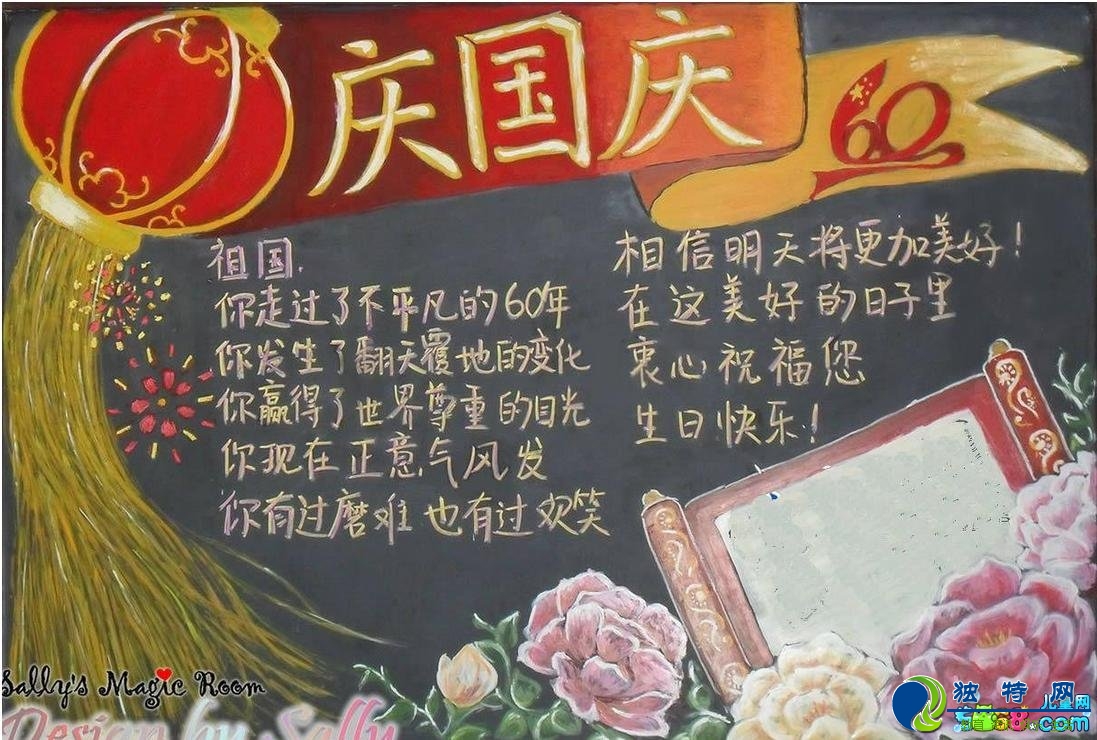 庆国庆
60
祖国.
你走过了不平凡的60年
你发生了翻天覆地的变化
你赢得了世界尊重的目光
你现在正意气风发
你有过磨难也有过欢笑
相信明天将更加美好!
在这美好的日子里
衷心祝福您
生日快乐!
Sally's Magic Room
Design by Sally
独特网
儿童网
.com